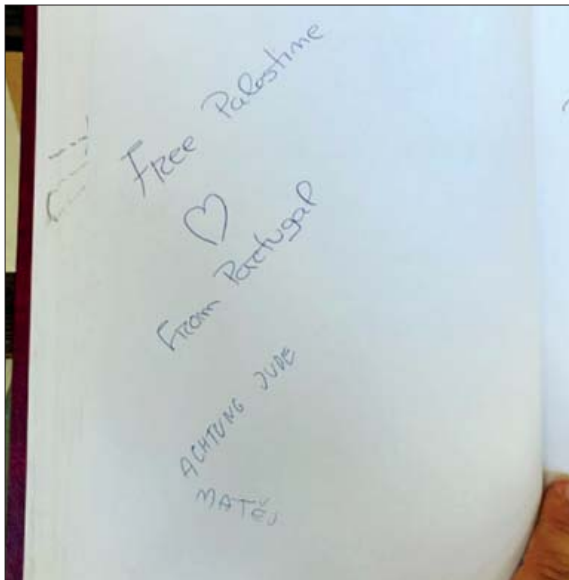 Free Palestine
From Portugal
ACHTUNG JUDE
MATĚJ